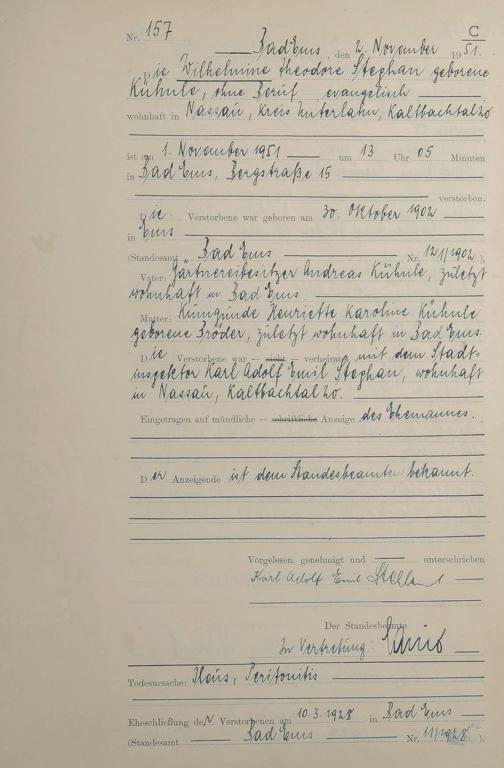 Nr. 157 C
Bad Ems, den 2. November 1951.
Die Wilhelmine Theodore Stephan geborene
Kühnle, ohne Beruf, evangelisch
wohnhaft in Nassau, Kreis Unterlahn, Kaltbachtal 20
ist am 1. November 1951 um 13 Uhr 05 Minuten
in Bad Ems, Bergstraße 15
verstorben.
Die Verstorbene war geboren am 30. Oktober 1902
in Ems
(Standesamt Bad Ems Nr. 121/1902).
Vater: Gärtnereibesitzer Andreas Kühnle, zuletzt
wohnhaft in Bad Ems.
Mutter: Henriette Karoline Kühnle
geborene Bröder, zuletzt wohnhaft in Bad Ems
Die Verstorbene war — nicht — verheiratet mit dem Stadt-
inspektor Karl Adolf Emil Stephan, wohnhaft
in Nassau, Kaltbachtal 20.
Eingetragen auf mündliche — schriftliche Anzeige des Ehemannes.
Der Anzeigende ist dem Standesbeamten bekannt.
Vorgelesen, genehmigt und unterschrieben
Karl Adolf Emil Stephan
Der Standesbeamte
In Vertretung:
Todesursache: Ileus, Peritonitis
Eheschließung der Verstorbenen am 10.3.1928 in Bad Ems
(Standesamt Bad Ems Nr. 11/1928).